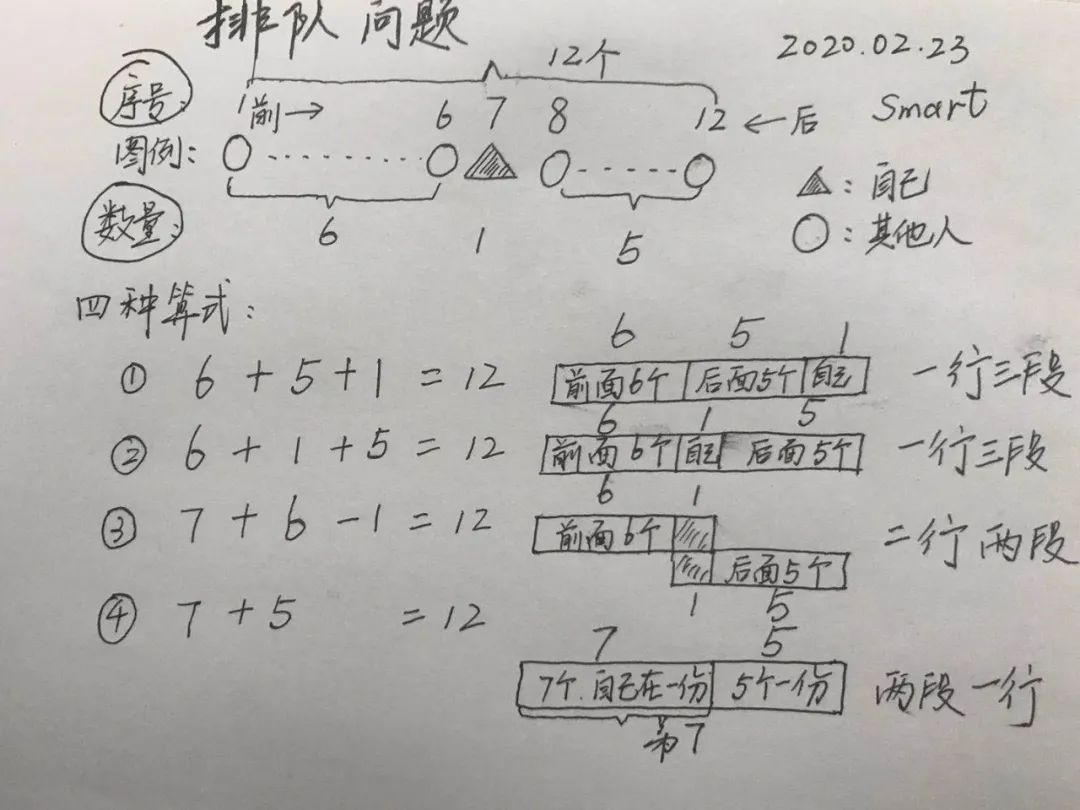 排队问题
2020.02.23
12个
Smart
序号:
1 前→ 6 7 8 12 ←后
图例:
:自己
数量:
6 1 5
:其他人
四种算式:
6 5 1
① 6+5+1=12
前面6个 后面5个 自己
一行三段
6 1 5
② 6+1+5=12
前面6个 自己 后面5个
一行三段
6 1
③ 7+6-1=12
前面6个
二行两段
后面5个
1 5
④ 7+5 =12
7 5
7个.自己在一份 5个一份
两段一行
为7